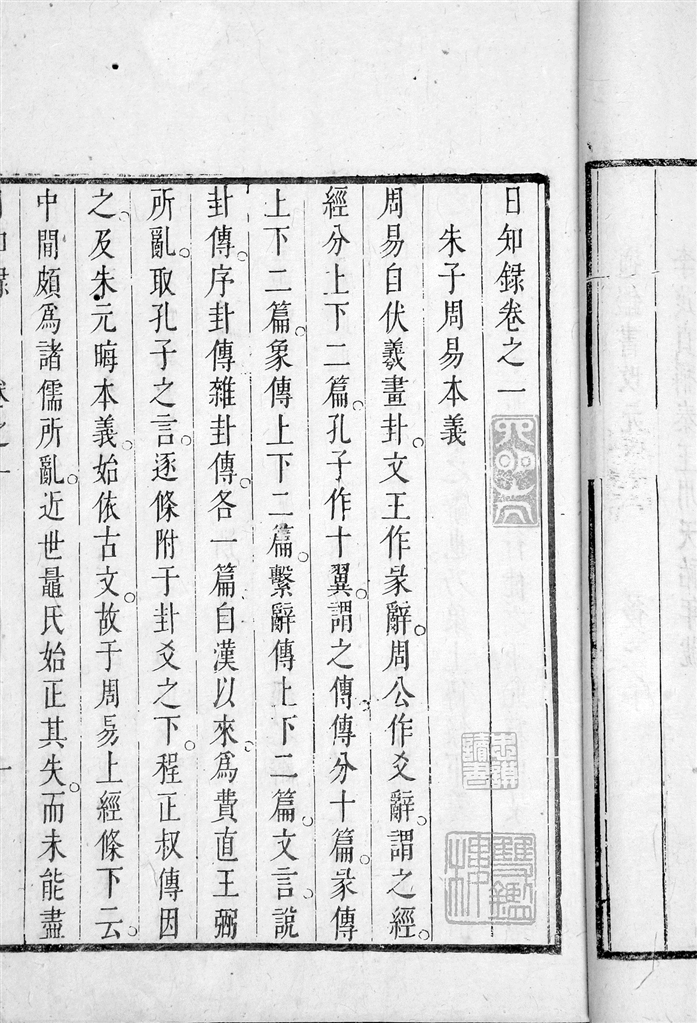 日知錄卷之一
朱子周易本義
周易自伏羲畫卦。文王作彖辭。周公作爻辭。謂之經。
經分上下二篇。孔子作十翼。謂之傳。傳分十篇。彖傳
上下二篇。象傳上下二篇。繫辭傳上下二篇。文言。說
卦傳。序卦傳。雜卦傳。各一篇。自漢以來。為費直王弼
所亂。取孔子之言。逐條附于卦爻之下。程正叔傳因
之。及朱元晦本義。始依古文。故于周易上經條下云。
中間頗為諸儒所亂。近世鼂氏始正其失。而未能盡
雙鑑樓